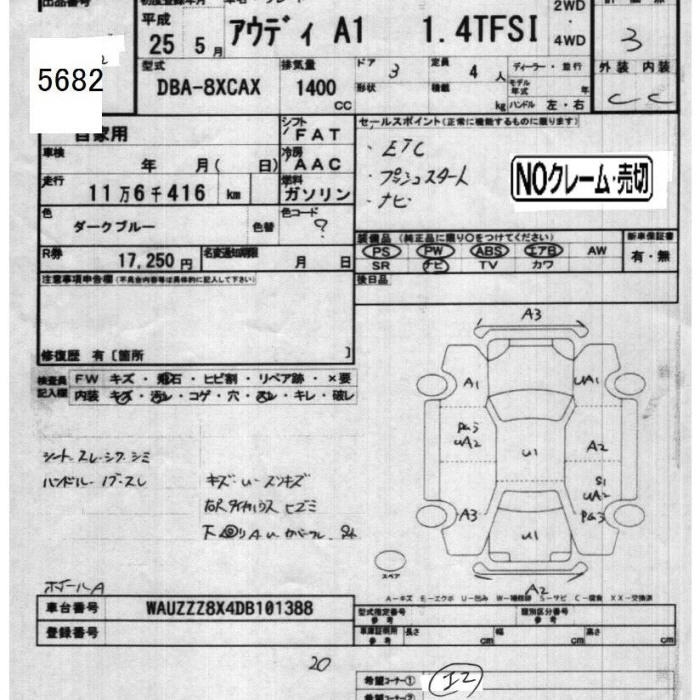 出品番号 初度登録年月 2WD
平成 アウディ A1 1.4TFSI ・
25 5月 4WD 3
5682
型式 排気量 ドア 3 定員 4人 ディーラー・並行 外装 内装
DBA-8XCAX 1400 CC 形状 積載 kg モデル年式 年 ハンドル 左・右 C C
自家用 シフト FAT セールスポイント(正常に機能するものに限ります)
車検 年 月( 日) 冷房 AAC ・ETC
走行 11万6千416 km 燃料 ガソリン ・プッシュスタート
・ナビ
NOクレーム・売切
色 ダークブルー 色替 色コード ?
装備品 (純正品に限り○をつけてください) 新車保証書
PS PW ABS エアB AW 有・無
SR ナビ TV カワ
R券 17,250円 名変通知期限 月 日
後日品
注意事項申告欄(不具合内容等は具体的に記入して下さい)
修復歴 有〔箇所 〕
検査員記入欄 FW キズ・飛石・ヒビ割・リペア跡・×要
内装 キズ・汚レ・コゲ・穴・スレ・キレ・破レ
A3
A1 UA1
PG3
UA2 U1 A2
S1
UA2
A3 PG3
U1
スペア
A2
シートスレ・シワ・シミ
ハンドル・ノブ・スレ
キズ・U・スリキズ
ホイールA
A-キズ E-エクボ U-凹み W-補修跡 S-サビ C-腐食 XX-交換済
車台番号 WAUZZZ8X4DB101388
登録番号
型式指定番号 参考 類別区分番号 参考
車庫証明用 参考 長さ cm 幅 cm 高さ cm
20
希望コーナー① I2
希望コーナー②